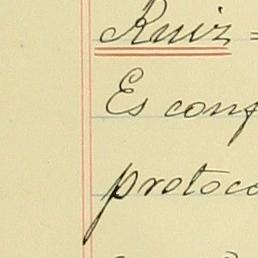 Ruiz =
Es conf
protoco